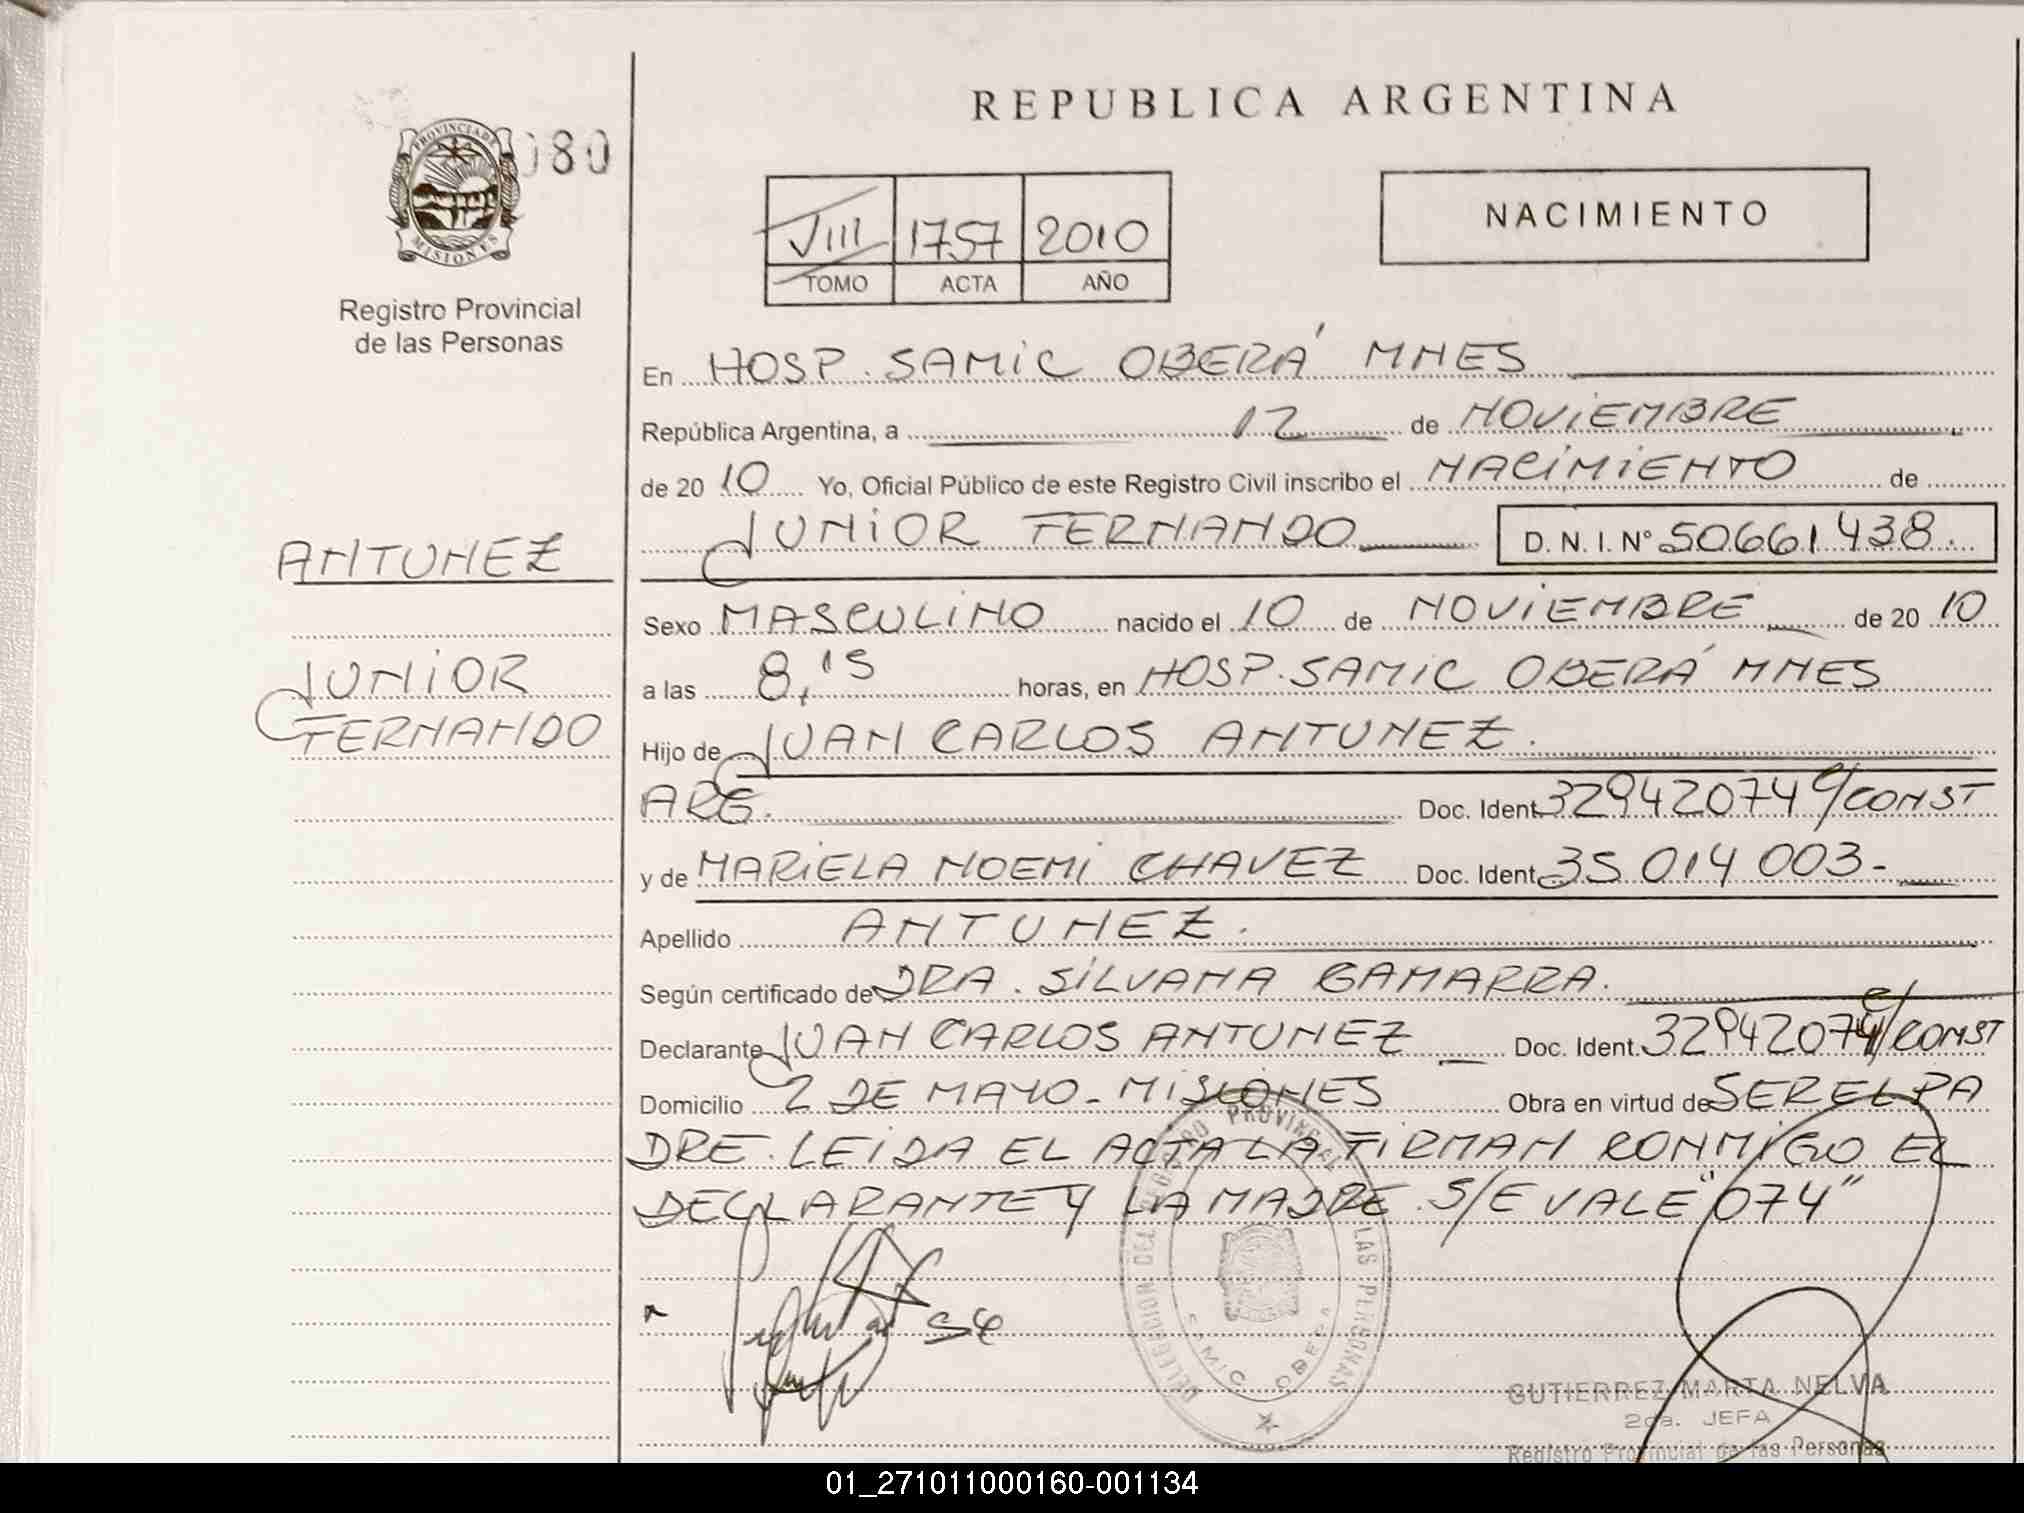 REPUBLICA ARGENTINA
PROVINCIA DE
MISIONES
080
Registro Provincial
de las Personas
VIII 1757 2010
TOMO ACTA AÑO
NACIMIENTO
En HOSP. SAMIC OBERÁ MNES
República Argentina, a 12 de NOVIEMBRE
de 20 10 Yo, Oficial Público de este Registro Civil inscribo el NACIMIENTO de
JUNIOR FERNANDO D. N. I. N° 50661438.
ANTUNEZ
Sexo MASCULINO nacido el 10 de NOVIEMBRE de 20 10
JUNIOR
a las 8,15 horas, en HOSP. SAMIC OBERÁ MNES
FERNANDO
Hijo de JUAN CARLOS ANTUNEZ.
ARG. Doc. Ident. 32942074 C/CONST
y de MARIELA NOEMI CHAVEZ Doc. Ident. 35 014 003-
Apellido ANTUNEZ.
Según certificado de DRA. SILVANA GAMARRA.
Declarante JUAN CARLOS ANTUNEZ Doc. Ident. 32942074 C/CONST
Domicilio 2 DE MAYO - MISIONES Obra en virtud de SER EL PA
DRE. LEIDA EL ACTA LA FIRMAN CONMIGO EL
DECLARANTE Y LA MADRE. S/E VALE "074"
DELEGACION DEL REGISTRO PROVINCIAL DE LAS PERSONAS
SAMIC OBERA
GUTIERREZ MARTA NELVA
2da. JEFA
Registro Provincial de las Personas
01_271011000160-001134